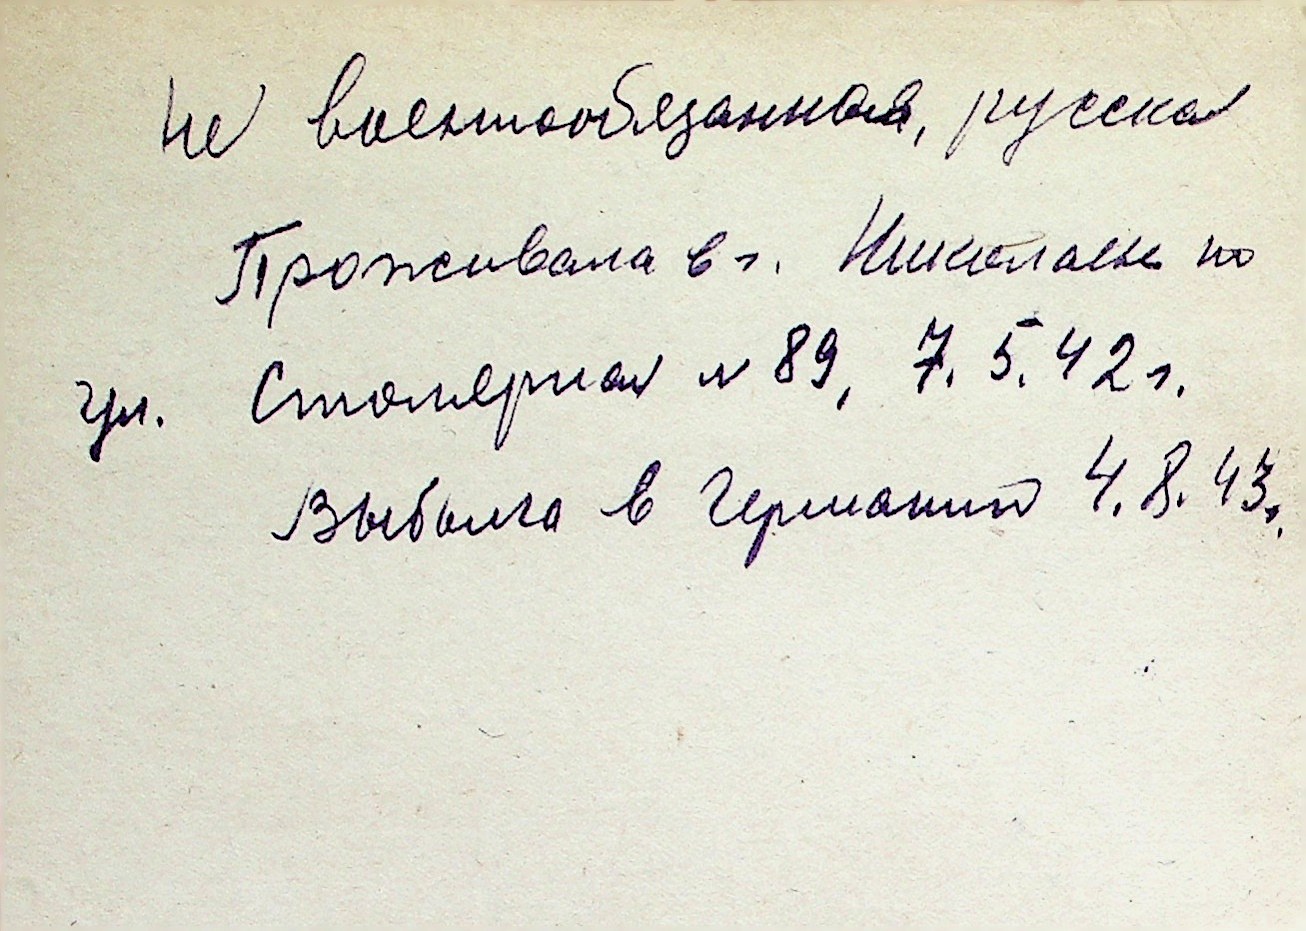 Не военнообязанная, русская
Проживала в г. Николаеве по
ул. Столярная № 89, 7.5.42 г.
Выбыла в Германию 4.8.43 г.